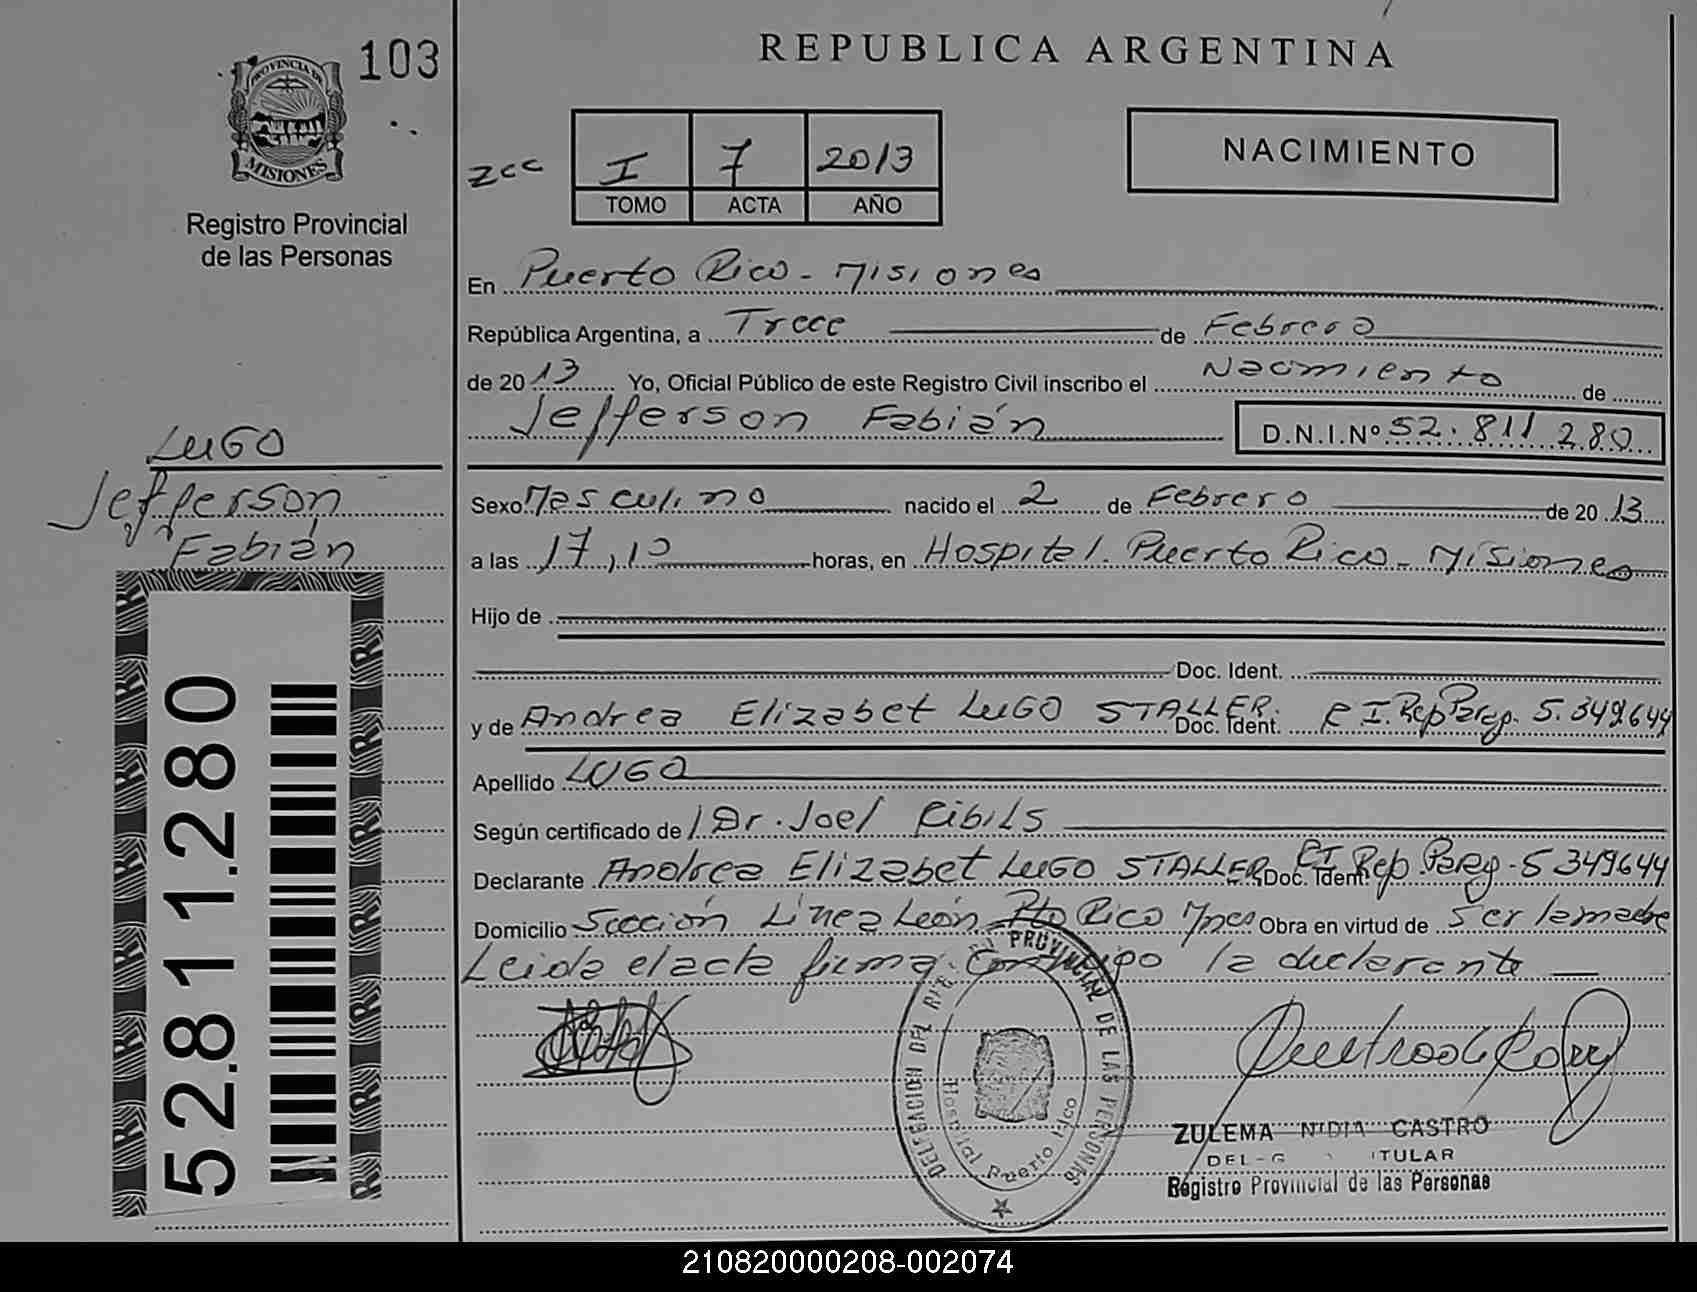 103
PROVINCIA DE
MISIONES
Registro Provincial
de las Personas
REPUBLICA ARGENTINA
zcc
I 7 2013
TOMO ACTA AÑO
NACIMIENTO
En Puerto Rico - Misiones
República Argentina, a Trece de Febrero
de 2013 Yo, Oficial Público de este Registro Civil inscribo el Nacimiento de
Jefferson Fabián D.N.I.Nº 52.811.280
LUGO
Jefferson
Fabián
Sexo Masculino nacido el 2 de Febrero de 2013
a las 17,10 horas, en Hospital. Puerto Rico - Misiones
Hijo de
Doc. Ident.
y de Andrea Elizabet LUGO STALLER. Doc. Ident. C I. Rep Parag. 5.349.644
Apellido LUGO
Según certificado de Dr. Joel Ribils
Declarante Andrea Elizabet LUGO STALLER Doc. Ident. CI Rep. Parag. 5 349644
Domicilio Sección Línea León Pto Rico Mnes Obra en virtud de Ser la madre
Leida el acta firma conmigo la declarante
52.811.280
DELEGACION DEL PROVINCIAL DE LAS PERSONAS
Hospital Puerto Rico
ZULEMA NIDIA CASTRO
TITULAR
Registro Provincial de las Personas
210820000208-002074